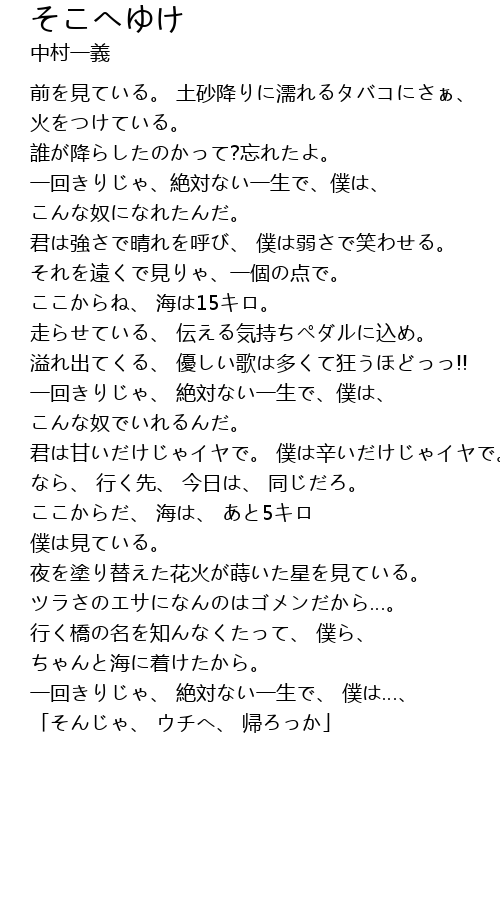 そこへゆけ
中村一義
前を見ている。 土砂降りに濡れるタバコにさぁ、
火をつけている。
誰が降らしたのかって?忘れたよ。
一回きりじゃ、絶対ない一生で、僕は、
こんな奴になれたんだ。
君は強さで晴れを呼び、 僕は弱さで笑わせる。
それを遠くで見りゃ、一個の点で。
ここからね、 海は15キロ。
走らせている、 伝える気持ちペダルに込め。
溢れ出てくる、 優しい歌は多くて狂うほどっっ!!
一回きりじゃ、 絶対ない一生で、僕は、
こんな奴でいれるんだ。
君は甘いだけじゃイヤで。 僕は辛いだけじゃイヤで。
なら、 行く先、 今日は、 同じだろ。
ここからだ、 海は、 あと5キロ
僕は見ている。
夜を塗り替えた花火が蒔いた星を見ている。
ツラさのエサになんのはゴメンだから…。
行く橋の名を知んなくたって、 僕ら、
ちゃんと海に着けたから。
一回きりじゃ、 絶対ない一生で、 僕は…、
「そんじゃ、 ウチへ、 帰ろっか」